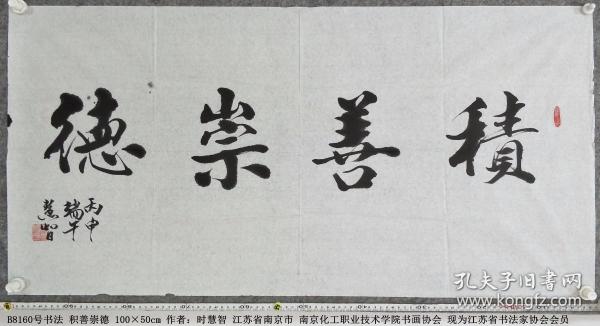 積善崇德
丙申
端午
慧智
孔夫子旧书网
www.kongfz.com
B8160号书法 积善崇德 100×50cm 作者：时慧智 江苏省南京市 南京化工职业技术学院书画协会 现为江苏省书法家协会会员